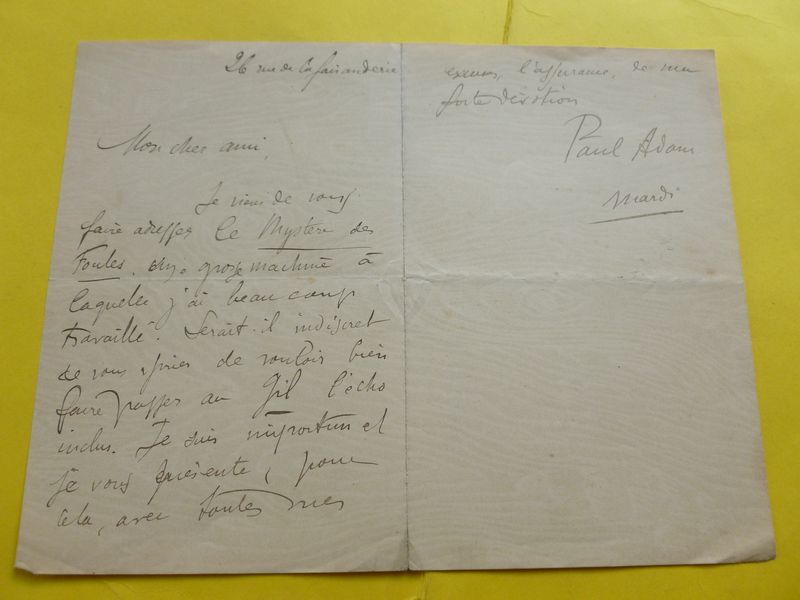 26 rue de la faisanderie
Mon cher ami,
Je viens de vous
faire adresser le Mystère des
Foules, grosse machine à
laquelle j'ai beaucoup
travaillé. Serait-il indiscret
de vous prier de vouloir bien
faire passer au Gil l'écho
inclus. Je suis importun et
je vous présente, pour
cela, avec toutes mes
excuses, l'assurance, de ma
forte dévotion
Paul Adam
Mardi